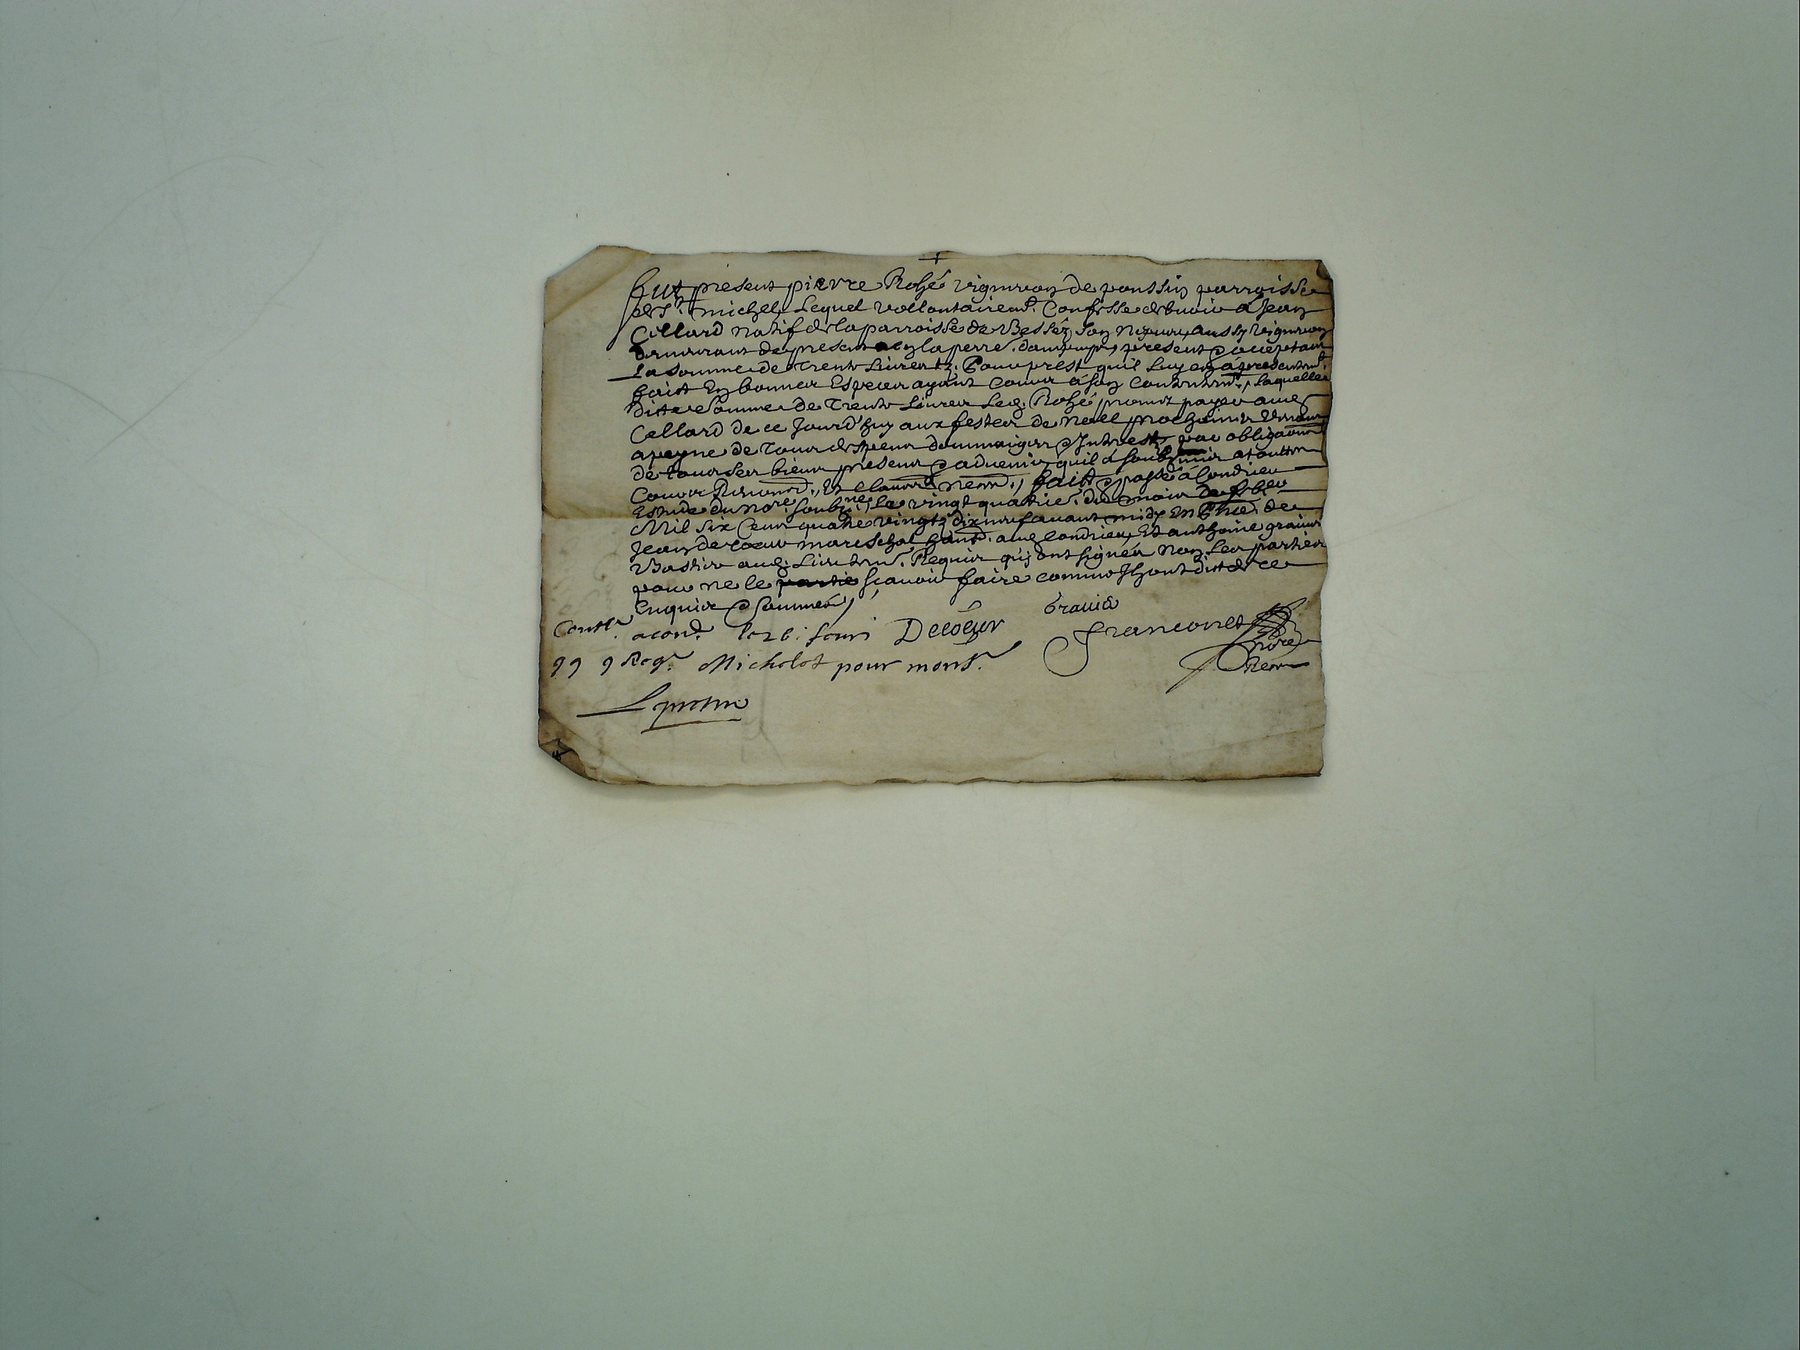 fut present pierre Rosé vigneron de poussin parroisse
de St. michel Lequel vollontairemt. Confesse debvoir a Jean
Cellard natif de la parroisse de Bessey son nepveu, aussy vigneron
demeurant de present a present & acceptant
La somme de Trente Livres Pour prest quil luy en a presentemt.
faict En bonnes Especes ayant Cours a son Contentemt., laquelle
ditte somme de Trente Livres Led. Rosé promet payer aud.
Cellard de ce Jourd'huy aux festes de noell prochaines venant
a peyne de tous despens dommaiges & Interest par obligaon.
de tous ses biens presens & advenir quil a soubzmis a touttes
Cours Renond., Et Clauses necess., faict & passé a Condrieu
Estude du nore. soubzné, le vingt quatrie. du mois de
Mil six Cens quatre vingtz dix neuf avant midy En Pnce. de
Jean decoeur mareschal habit. aud. Condrieu, Et anthoine gravier
aud. Requis qui ont signés non les parties
pour ne le sçavoir faire comme Ils ont dict de ce
Enquis & sommés
Contlé. a cond. Decoeur Gravier
99 Regé. Michelot pour monsr. Franconet
nore